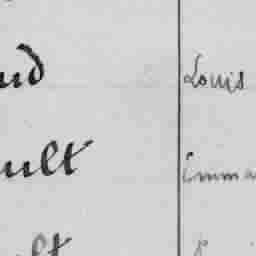 ud Louis
ult Emma
lt